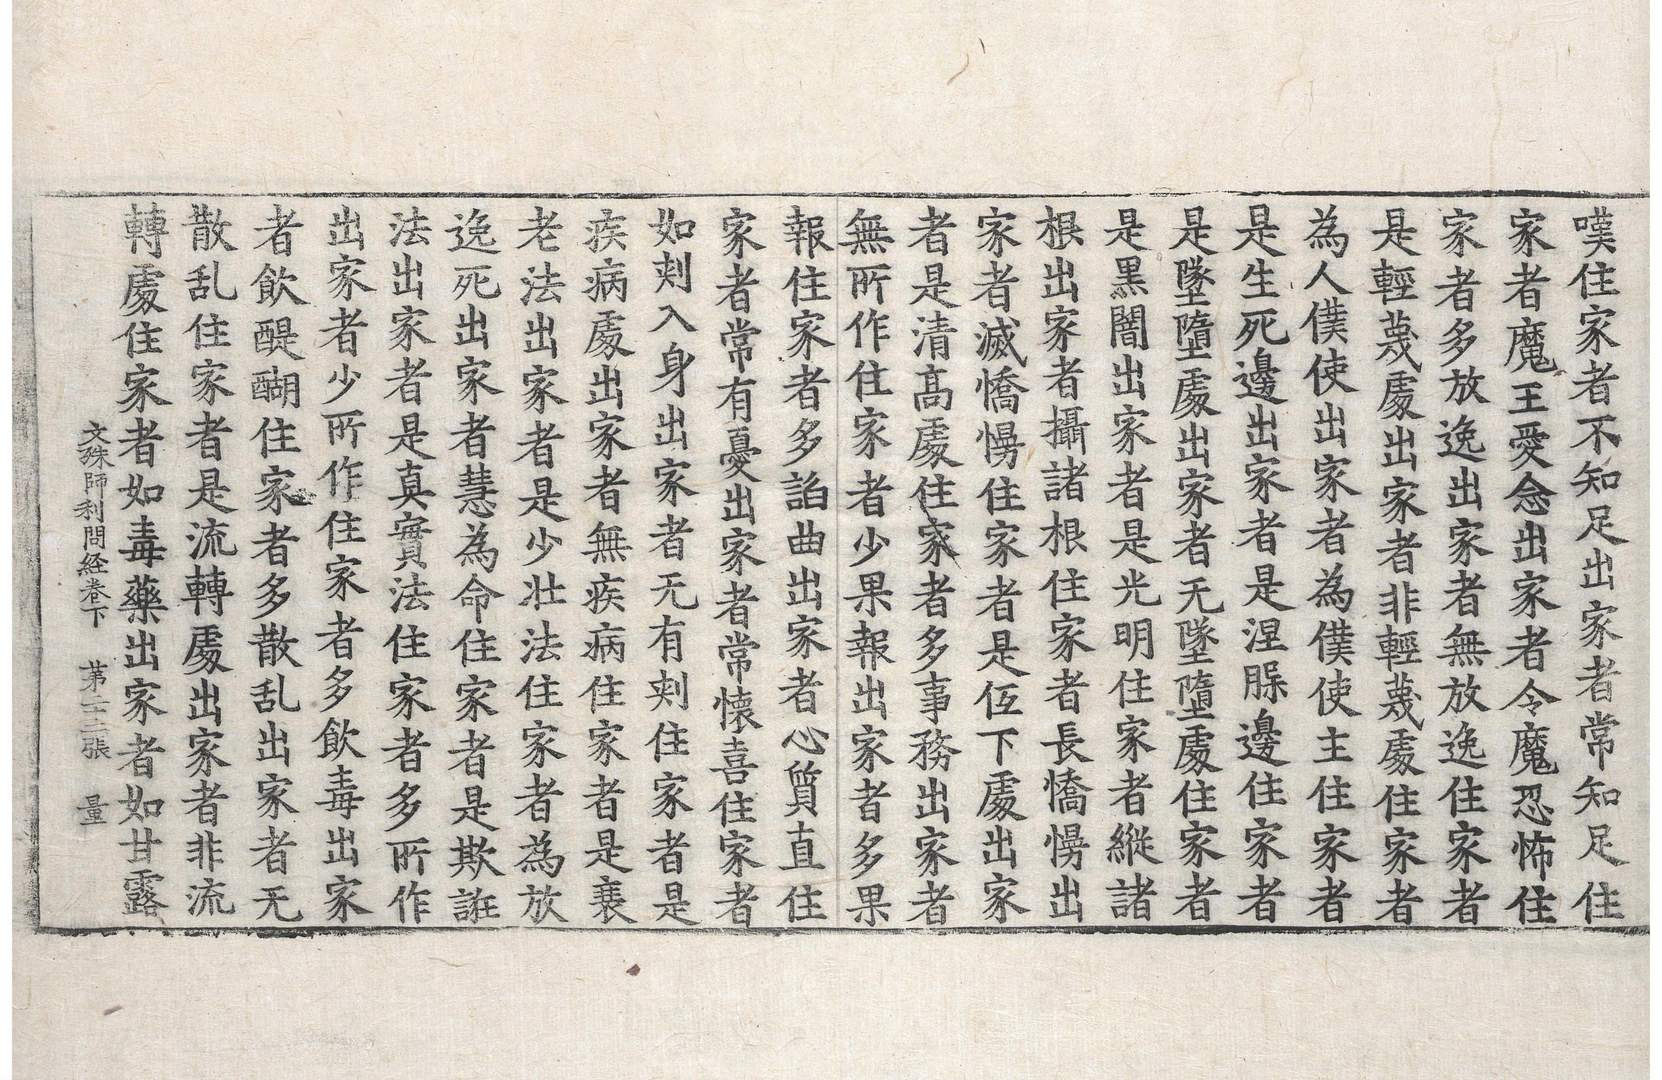 嘆住家者不知足出家者常知足住
家者魔王愛念出家者令魔恐怖住
家者多放逸出家者無放逸住家者
是輕蔑處出家者非輕蔑處住家者
為人僕使出家者為僕使主住家者
是生死邊出家者是涅脲邊住家者
是墜墮處出家者无墜墮處住家者
是黒闇出家者是光明住家者縱諸
根出家者攝諸根住家者長憍慢出
家者滅憍慢住家者是伍下處出家
者是清髙處住家者多事務出家者
無所作住家者少果報出家者多果
報住家者多諂曲出家者心質直住
家者常有憂出家者常懐喜住家者
如刾入身出家者无有刾住家者是
疾病處出家者無疾病住家者是衰
老法出家者是少壮法住家者為放
逸死出家者慧為命住家者是欺誑
法出家者是真實法住家者多所作
出家者少所作住家者多飲毒出家
者飲醍醐住家者多散乱出家者无
散乱住家者是流轉處出家者非流
轉處住家者如毒藥出家者如甘露
文殊師利問経卷下 苐二十二張 量